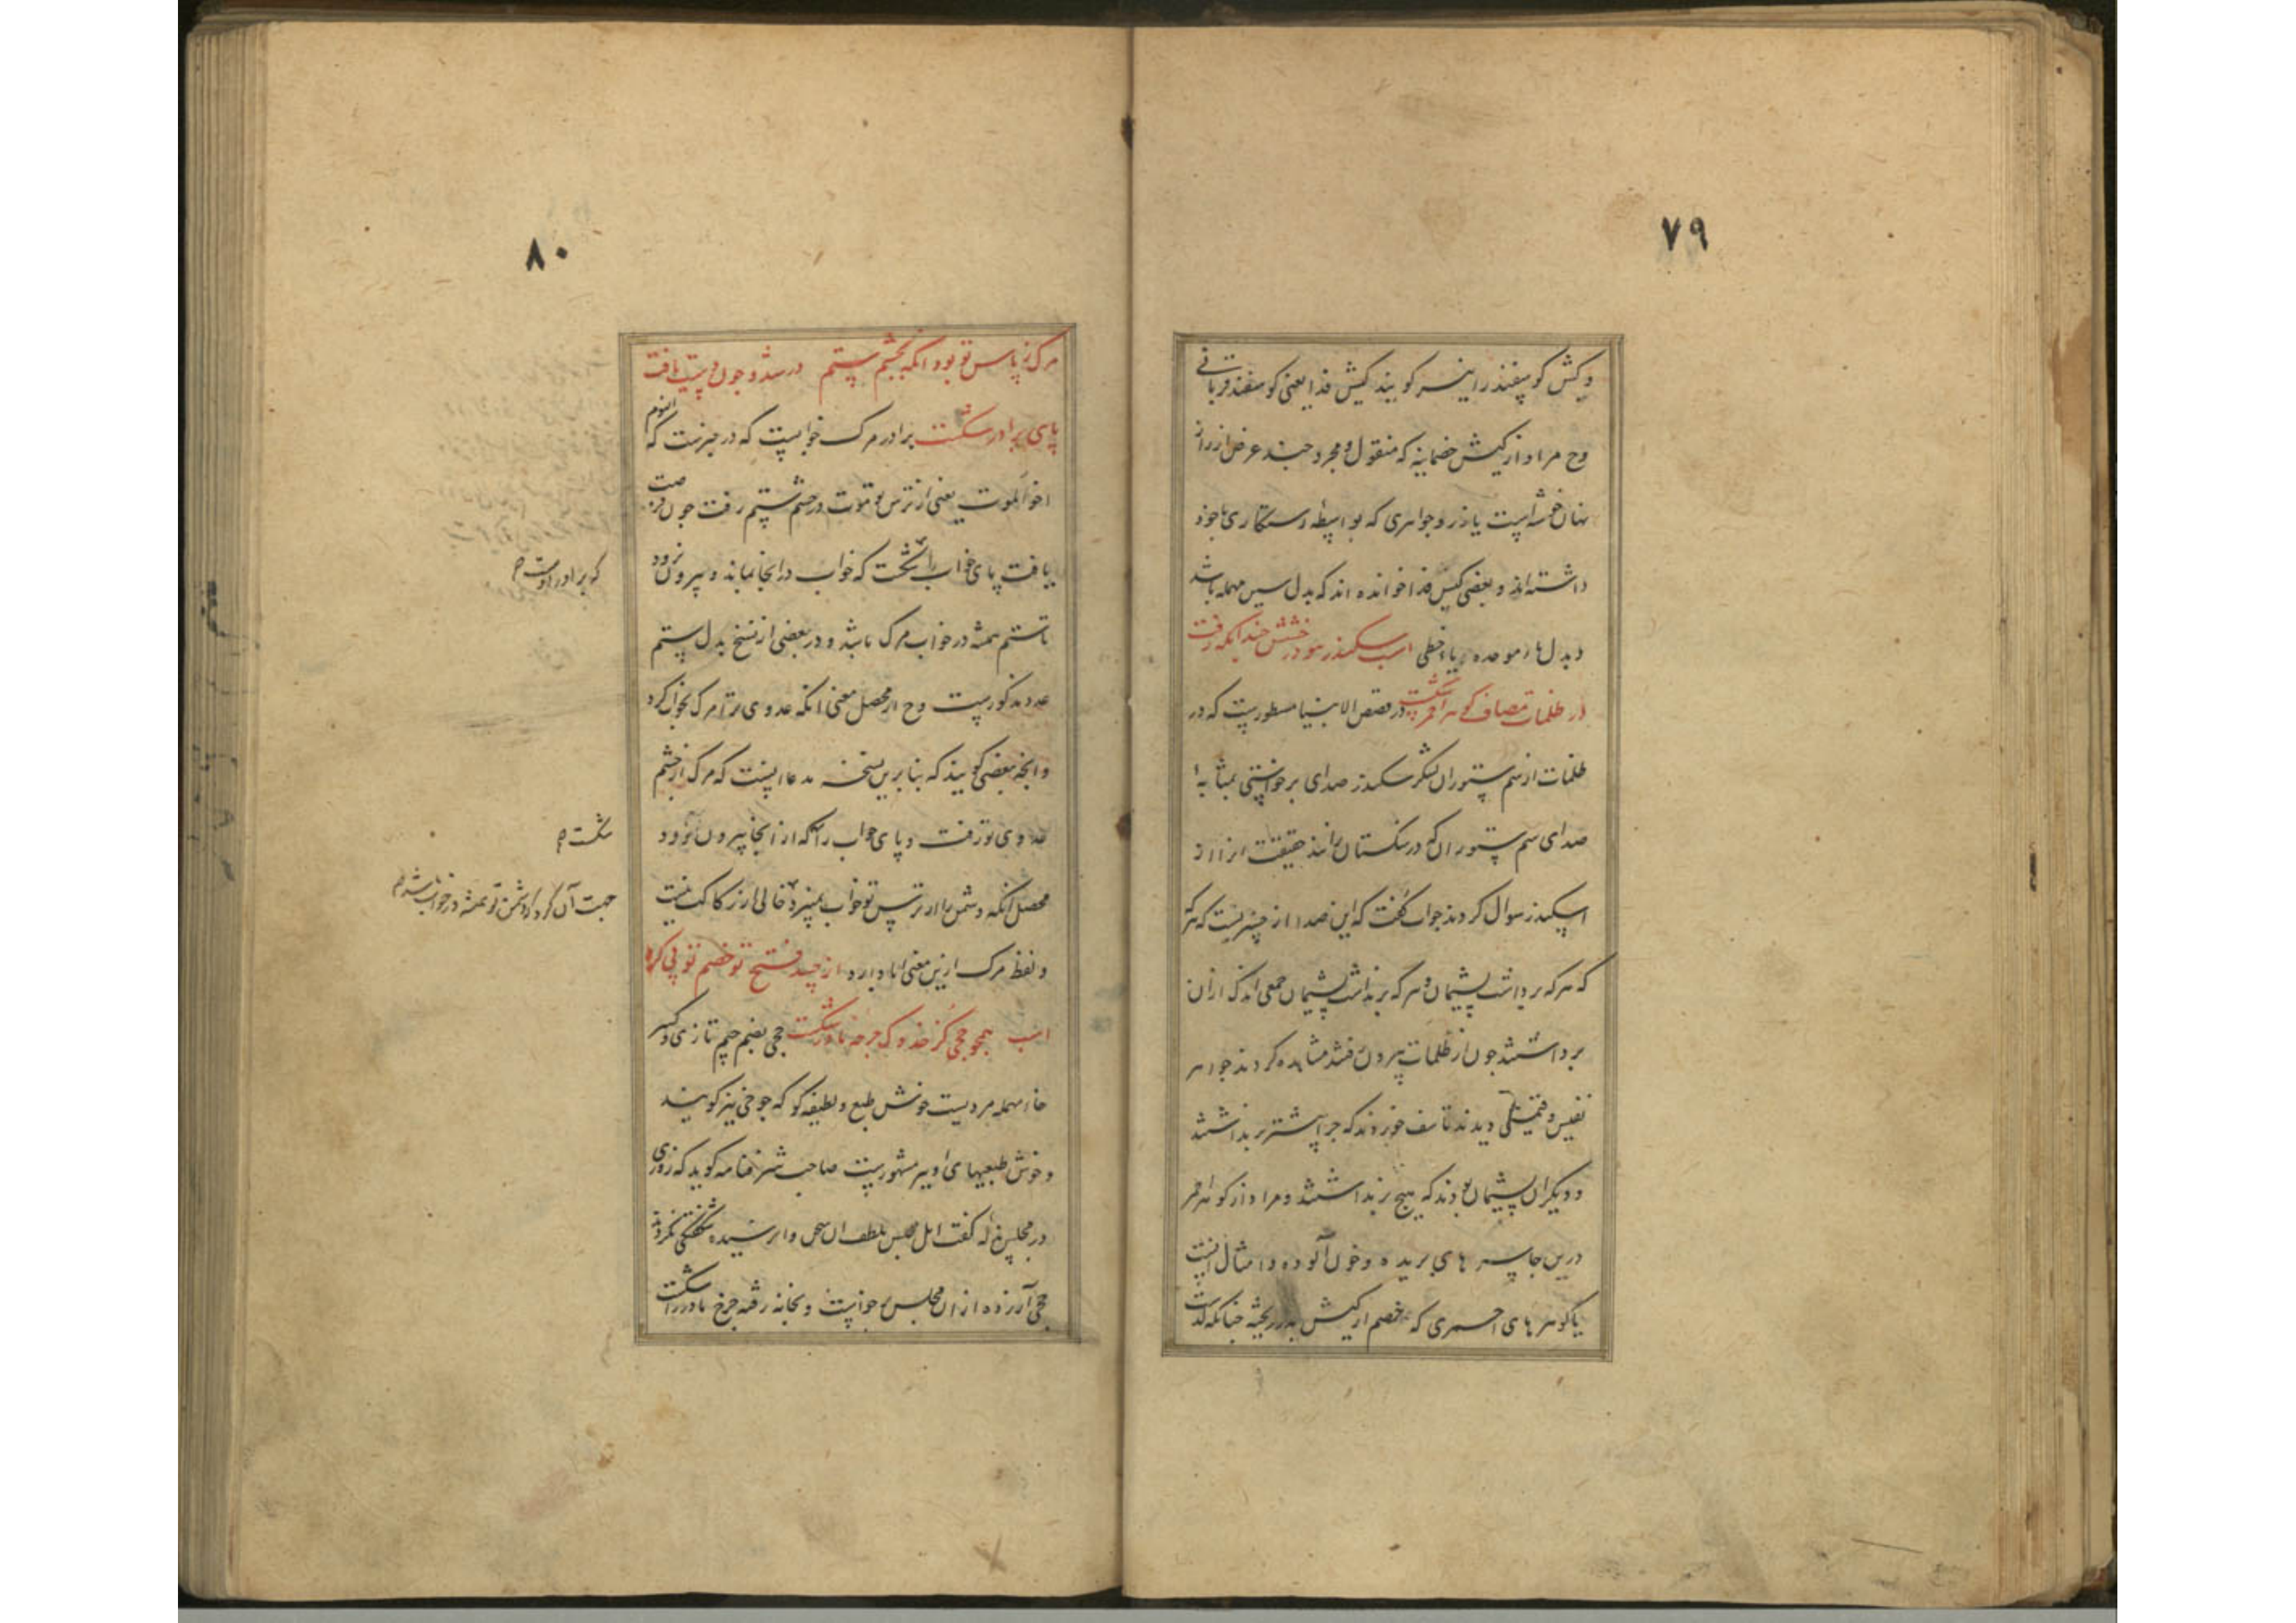 ٧٩
وکش کوسفند را نیز کویند کیش فدا یعنی کوسفند قربانی
وح مراد از کیش خصمانیه که منقول و مجروحند غرض از راز
نهان خوشه است یا زر و جواهری که بواسطه رستکاری باخود
داشته اند و بعضی کبس فدا خوانده اند که بدل سین مهمله باشد
و بدل باء موحده یاء حطی اسب سکندر نبود رخشش چند انکه رفت
در ظلمات مصاف کوهر احمر شکست در قصص الانبیا مسطورست که در
ظلمات از سم ستوران لشکر سکندر صدای برخواستی بمثابهٔ
صدای سم ستوران که در سنکستان رانند حقیقت انرا از
اسکندر سوال کردند جواب کفت که این صدا از چیزیست که هرکه
که هر که برداشت پشیمان و هر که برنداشت پشیمان جمعی اندک ازان
برداشتند چون از ظلمات بیرون رفتند مشاهده کردند جواهر
نفیس و قیمتی دیدند تاسف خوردند که چرا بیشتر برنداشتند
و دیکران پشیمان بودند که هیچ برنداشتند و مراد از کوهر احمر
درین جا سرهای بریده و خون آلوده و امثال انست
یا کوهرهای احمری که خصم از کیش بدر ریخته چنانکه کذشت
٨٠
مرک ز پاس تو بود انکه بچشم ستم درشد و چون دربیت یافت
پای برادر شکست برادر مرک خوابست که در خبرست که النوم
اخو الموت یعنی از ترس تو موت در چشم ستم رفت چون فرصت
یافت پای خواب را شکست که خواب درانجا بماند و بیرون نرود
تا ستم همیشه در خواب مرک باشد و در بعضی از نسخ بدل ستم
عدو مذکورست وح از محصل معنی انکه عدوی ترا مرک بخواب کرد
و انچه بعضی کویند که بنا برین نسخه مدعا اینست که مرک از چشم
عدوی تو رفت و پای خواب را که از انجا بیرون نرود
محصل انکه دشمن را از ترس تو خواب نمیبرد خالی از رکاکت نیست
و لفظ مرک ازین معنی ابا دارد از چه فتح تو خصم تو پی کرد
اسب همچو جحی کز خدوک چرخه مادر شکست جحی بضم جیم تازی و کسر
حاء مهمله مردیست خوش طبع و لطیفه کو که جوحی نیز کویند
و خوش طبعیهای او نیز مشهورست صاحب شرفنامه کوید که روزی
در مجلس هزله کفت اهل مجلس بلطف ان سخن وا نرسیده شکفتکی نکردند
جحی آزرده ازان مجلس برخواست و بخانه رفته چرخ مادر را شکست
که برادر اوست م
شکست م